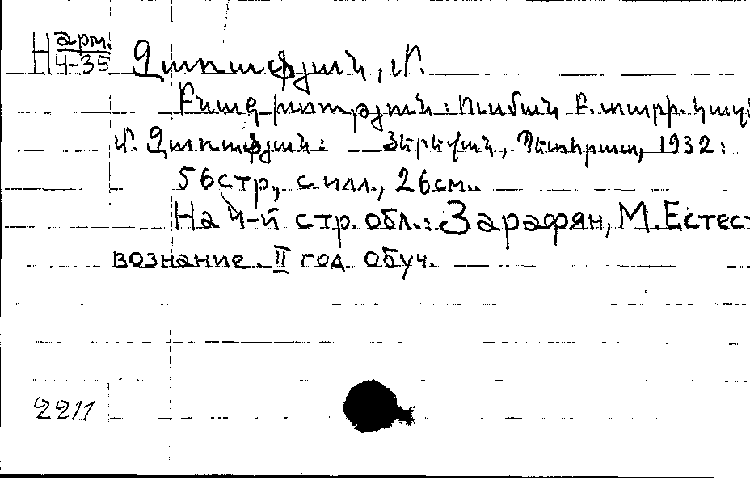 Н арм.
4-35
Զառաֆյան, Մ.
Բնագիտություն: Ուսման Բ. տարի. կազ
Մ. Զառաֆյան: Յերեվան, Պետհրատ, 1932:
56 стр., с илл., 26 см.
На 4-й стр. обл.: Зарафян, М. Естест
вознание. II год обуч.
2211